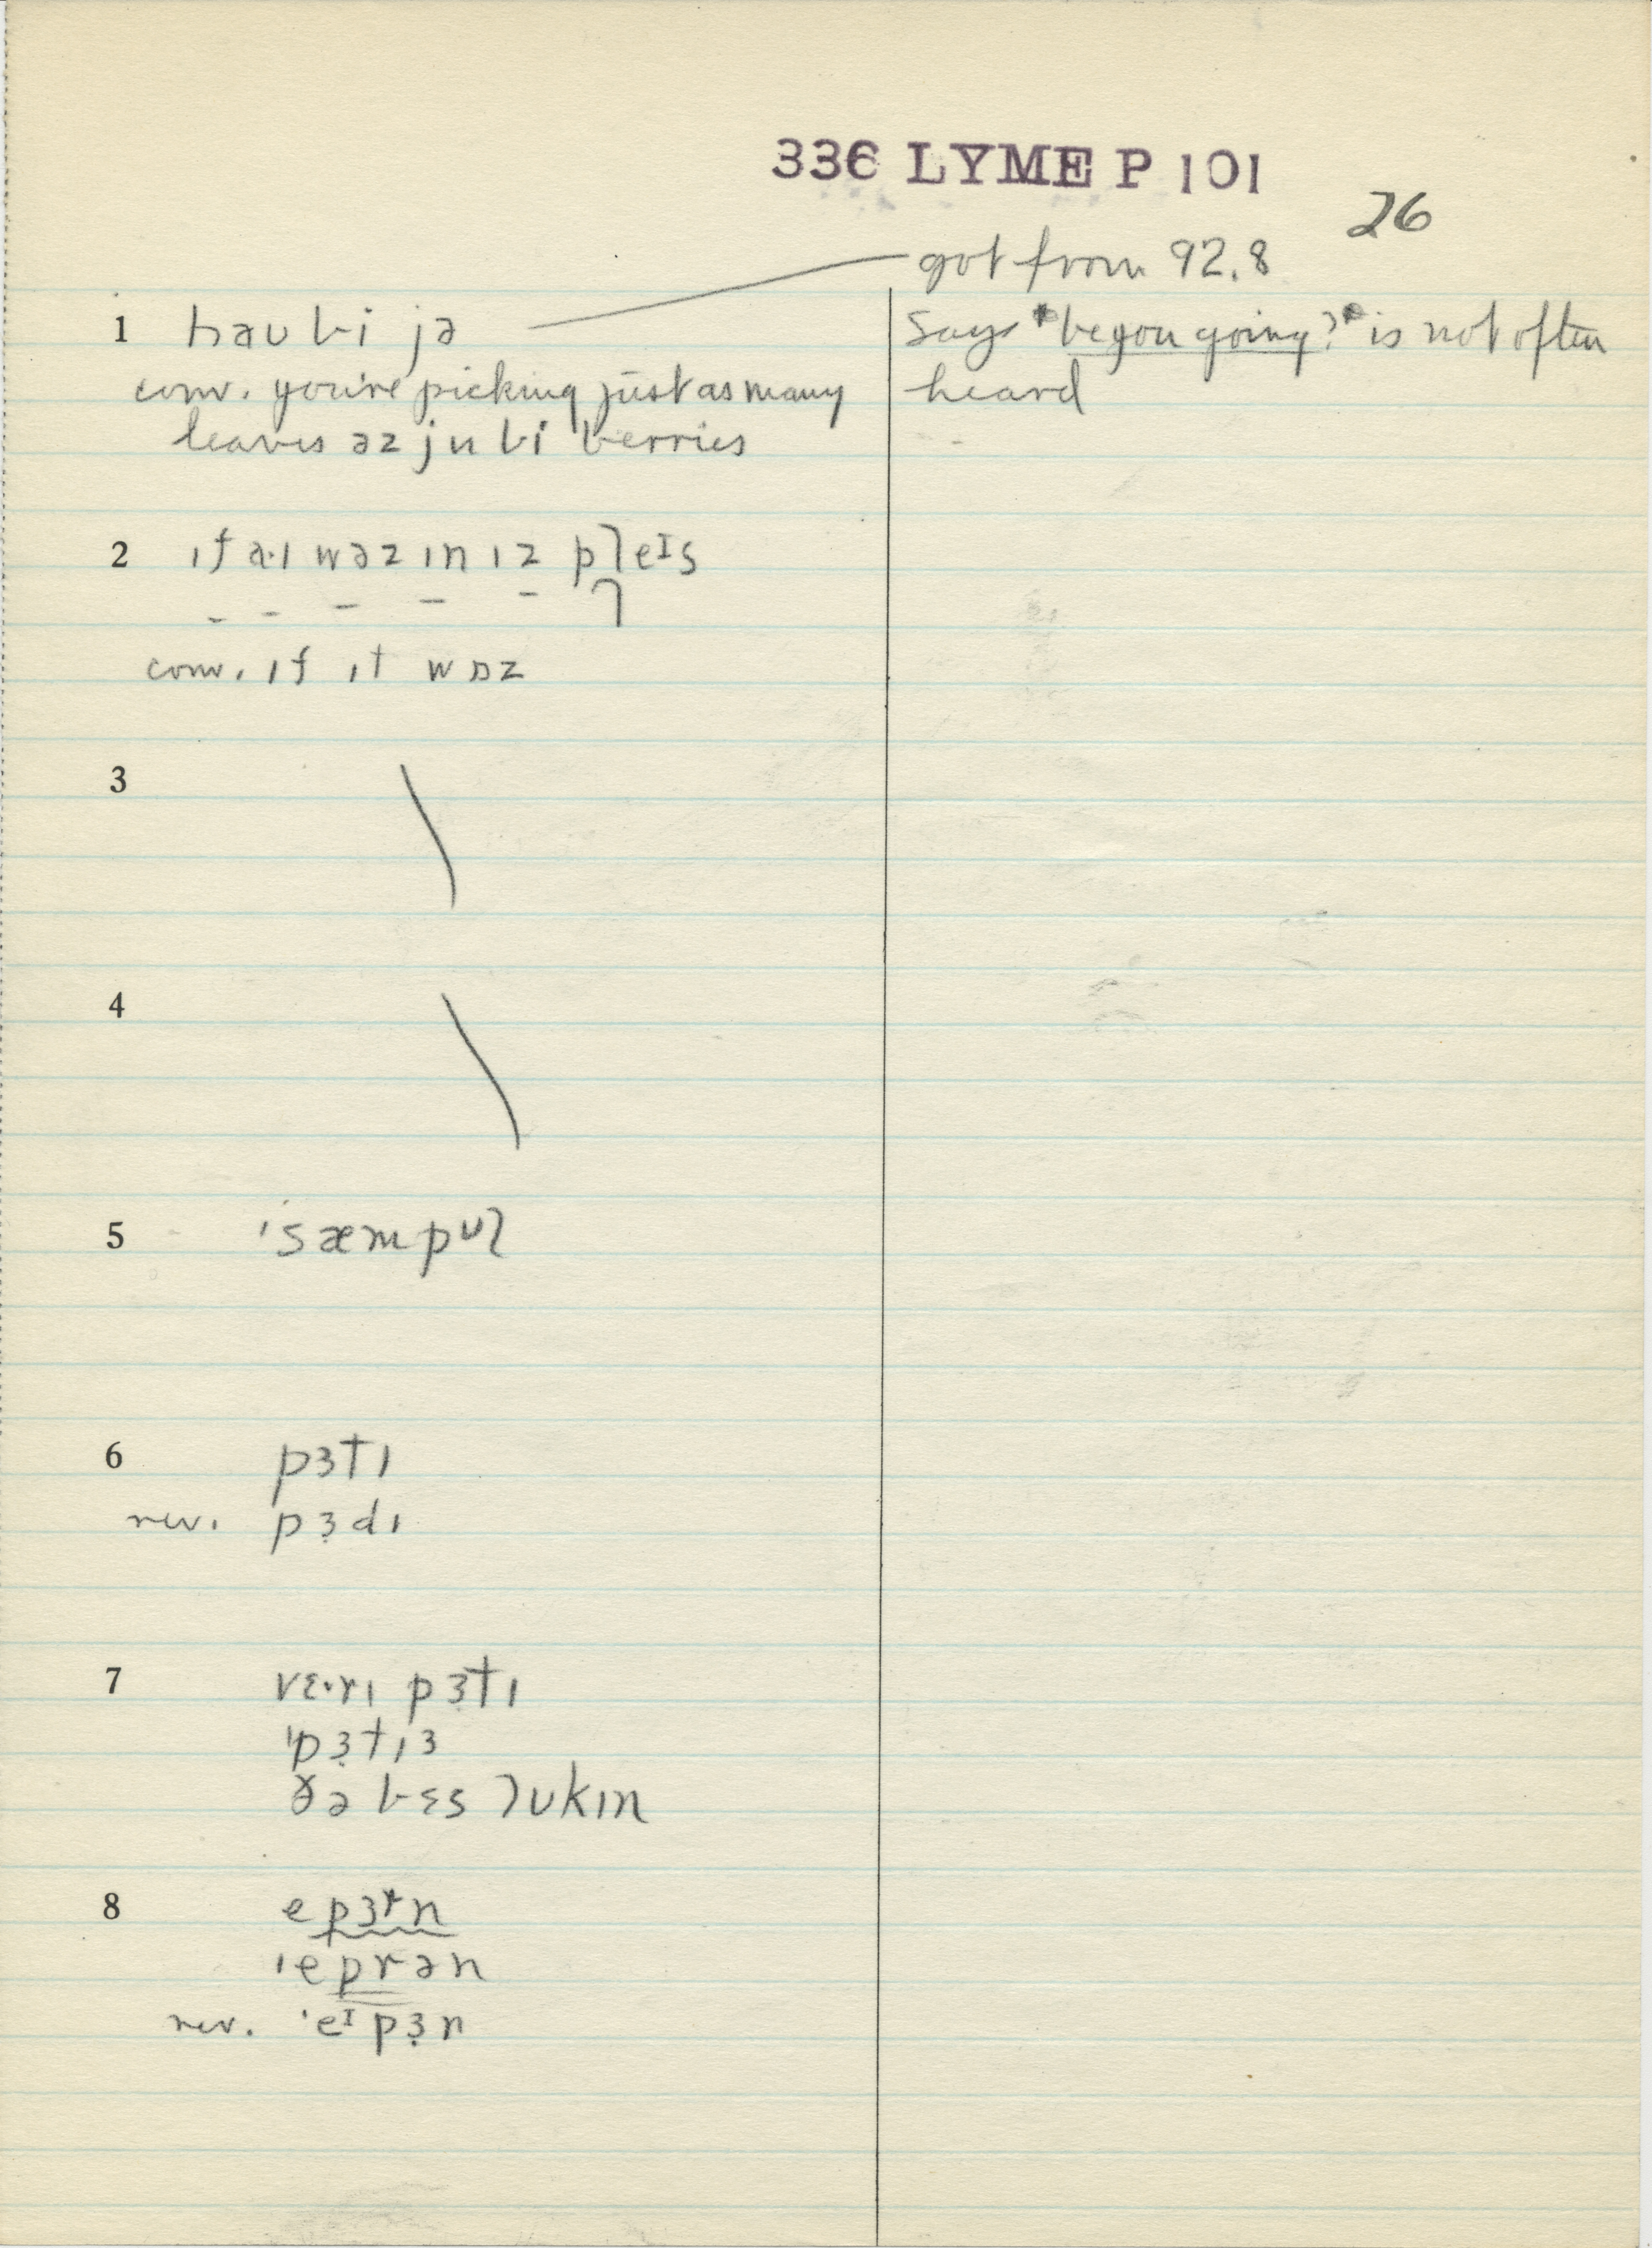 336 LYME P 101
26
got from 92.8
1 haʊ bi jə
Says "be you going?" is not often
conv. you're picking just as many
heard
leaves əz ju bi berries
2 ɪf a·ɪ wəz ɪn ɪz pleɪs
- - - - - ⌉
conv. ɪf ɪt wɒz
3
4
5 'sæmpʊl
6 pɜtɪ
rev. pɜ̣dɪ
7 vɛ·rɪ pɜ̣tɪ
'pɜ̣tɪɜ
ðə bɛs lʊkɪn
8 e pɜrn
'eprən
rev. 'eɪpɜ̣n